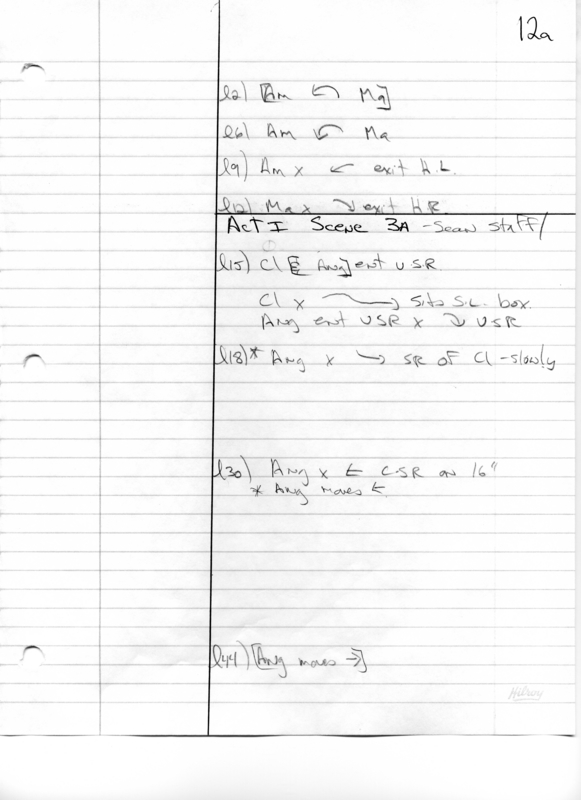 12a
l2) [Am ↶ Ma]
l6) Am ↶ Ma
l9) Am x ← exit H.L.
l12) Ma x ↘ exit H.R.
Act I Scene 3A - Sean Staff/
l15) Cl [& Ang] ent USR
Cl x → Sits S.L. box.
Ang ent USR x ↘ USR
l18)* Ang x → SR of Cl - slowly
l30) Ang x ← CSR on 16"
* Ang moves ←
l44) [Ang moves →]
Hilroy